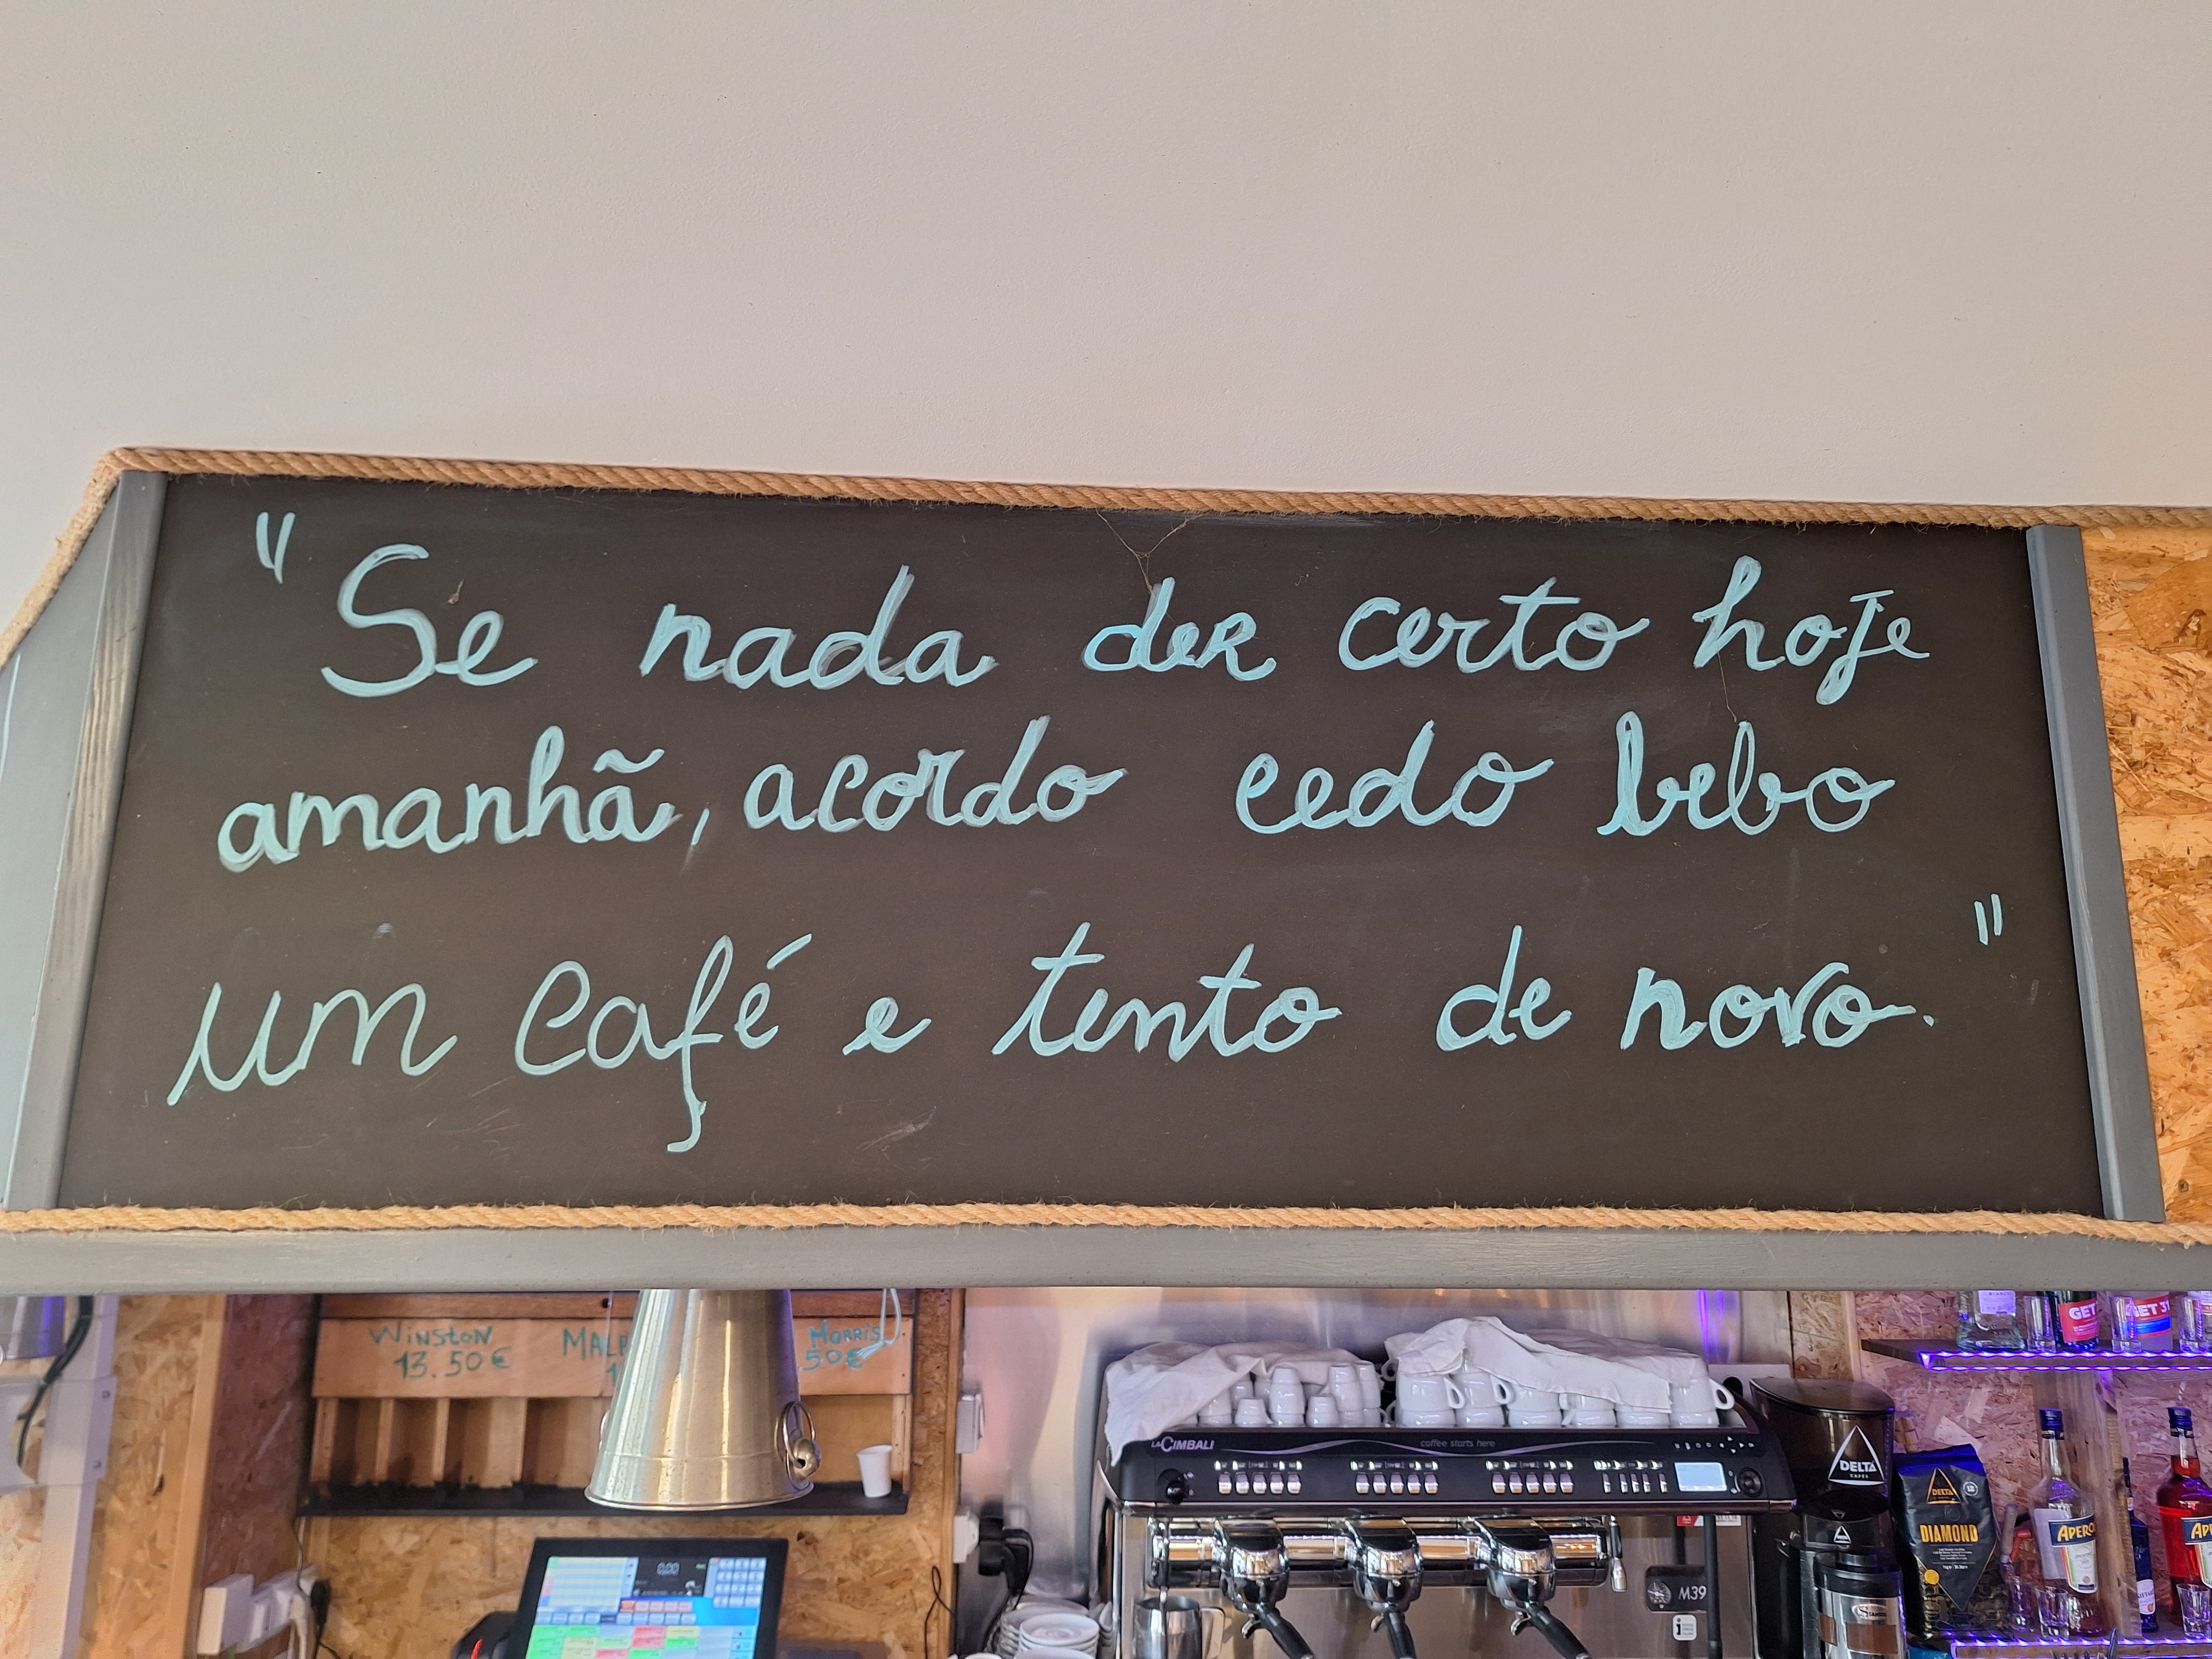 "Se nada der certo hoje
amanhã, acordo cedo bebo
um café e tento de novo."
WINSTON
13.50€
MORRIS
50€
GET
GET 31
LA CIMBALI
coffee starts here
M39
DELTA
CAFÉS
DELTA
DIAMOND
APEROL